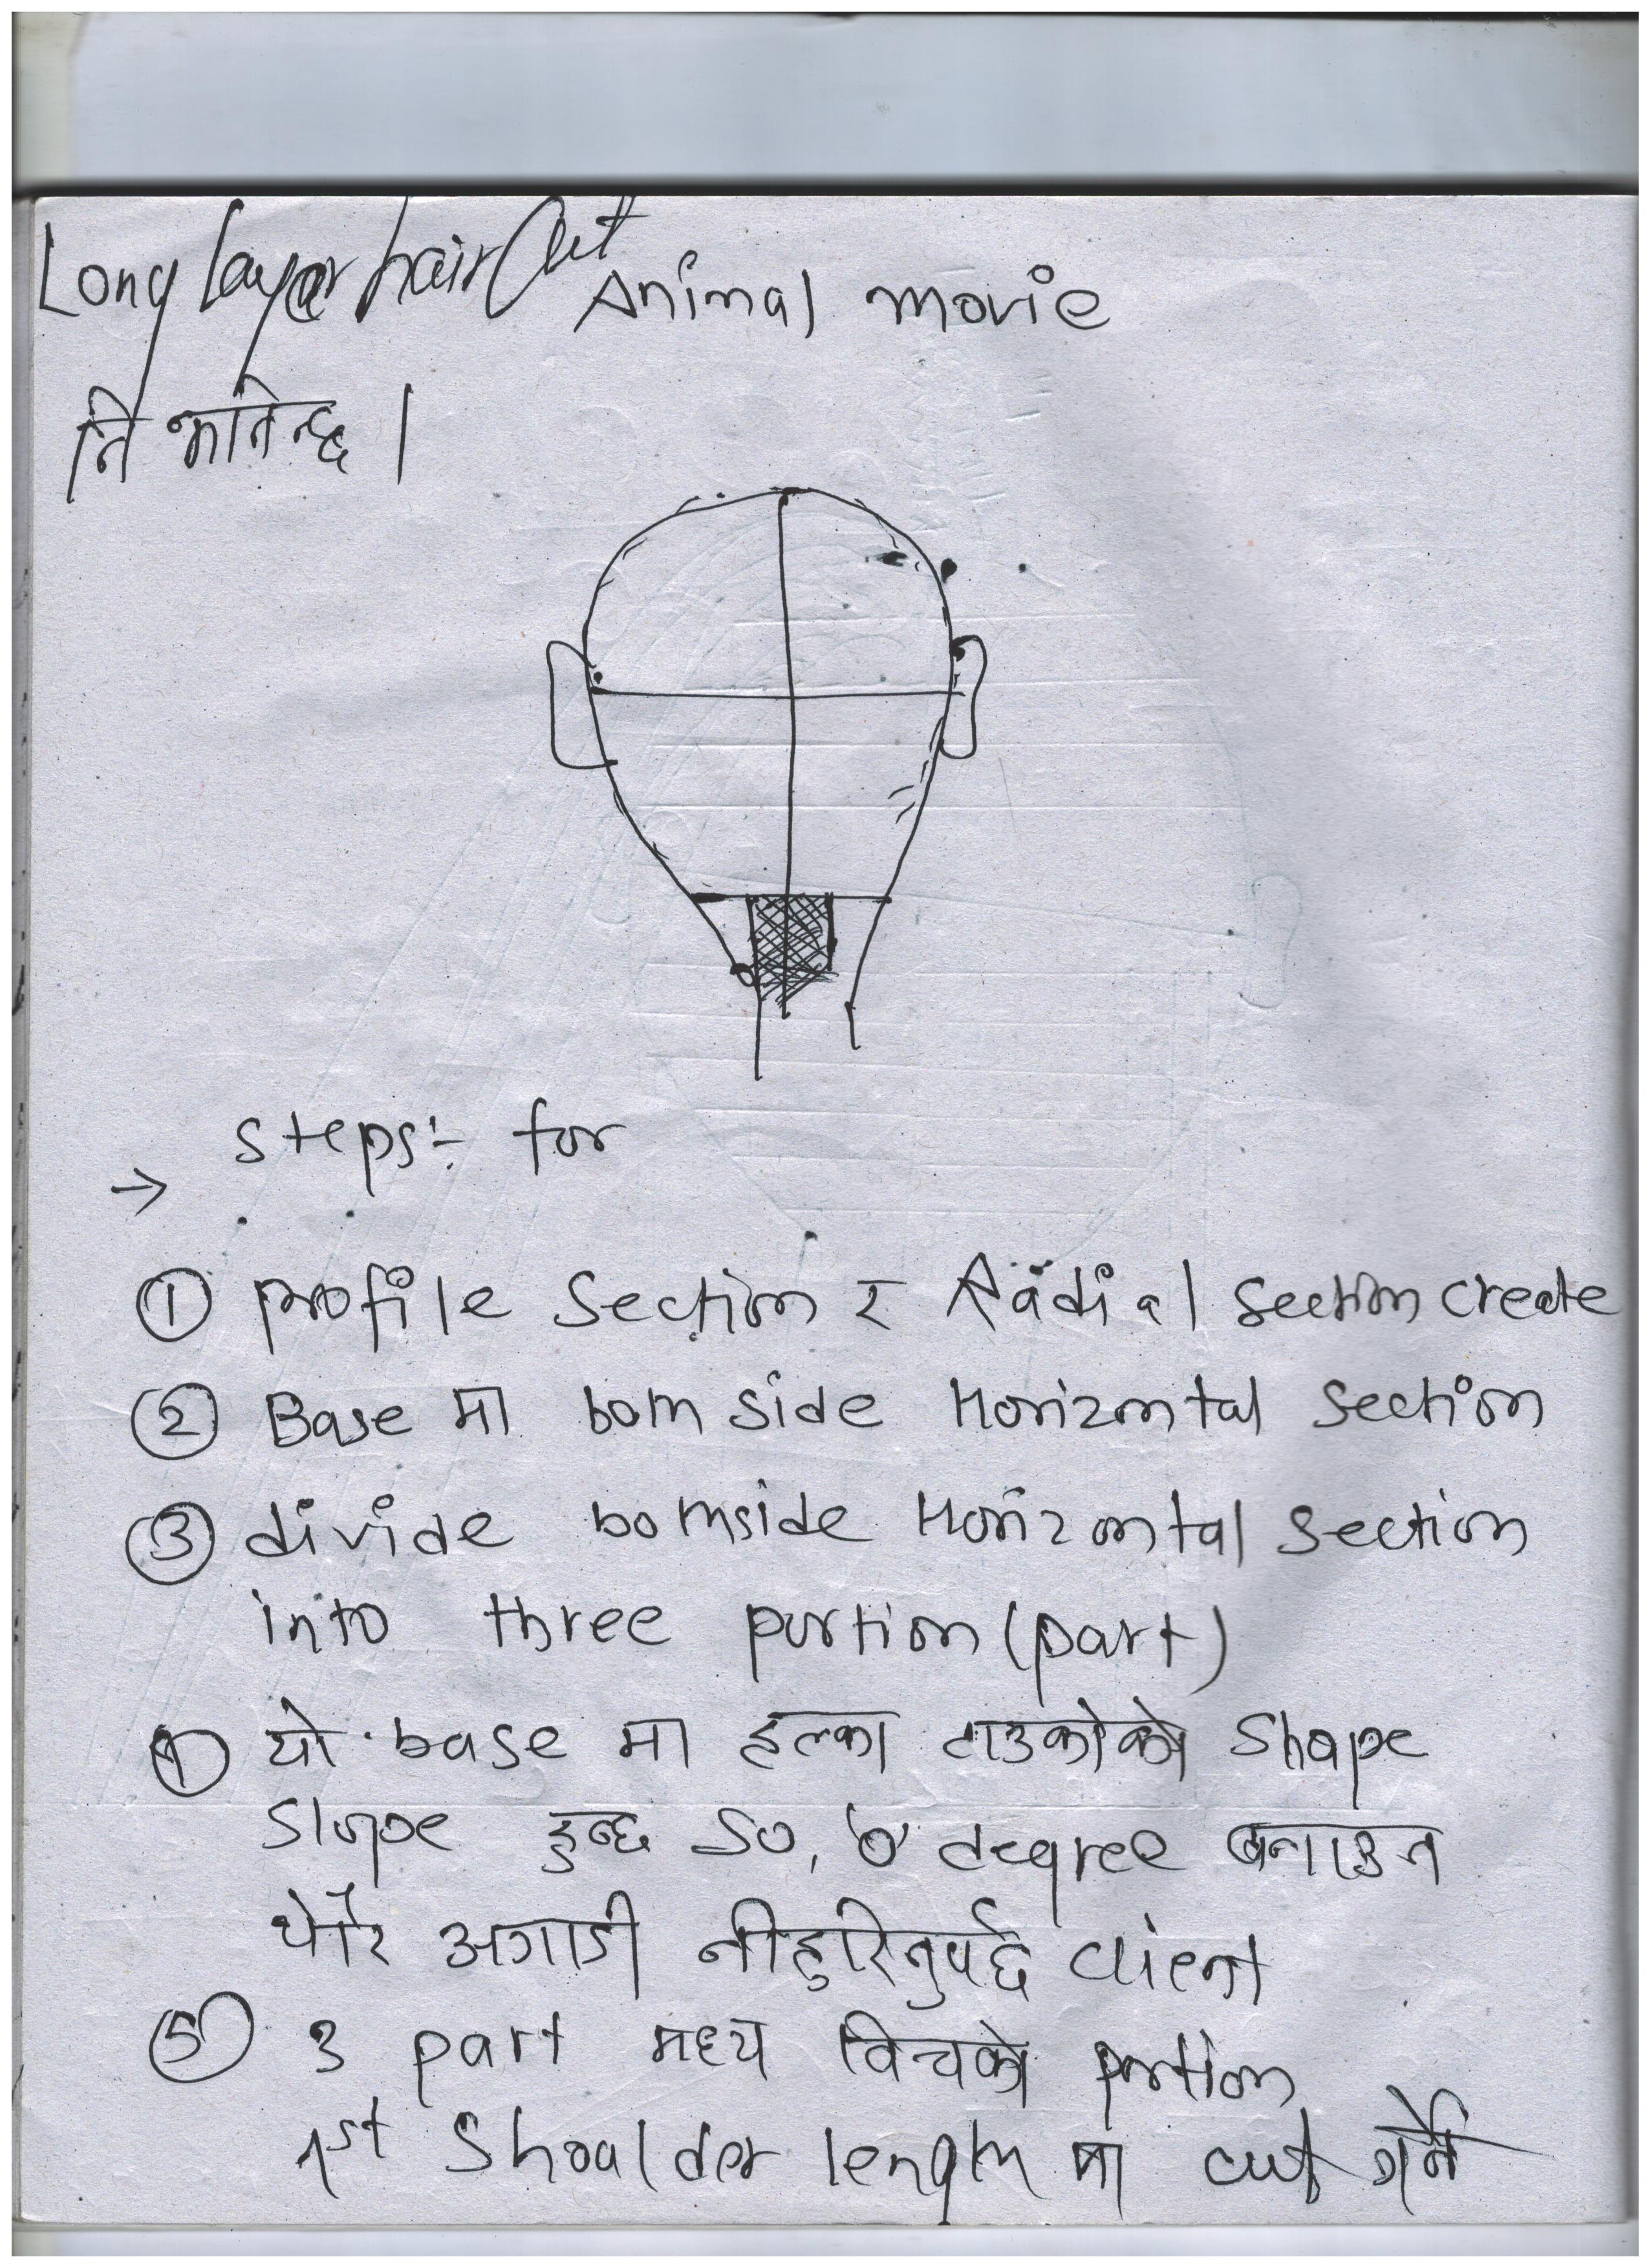 Long layer hair Cut Animal movie
नि भनिन्छ ।
→ steps:- for
① profile Section र Radial section create
② Base मा both side Horizontal section
③ divide bothside Horizontal section
into three portion (part)
④ यो base मा हल्का टाउकोको shape
slope हुन्छ so, '0' degree बनाउन
थोरै अगाडी नीहुरिनुपर्छ client
⑤ 3 part मध्य विचको portion
1st Shoulder length मा cut गर्ने